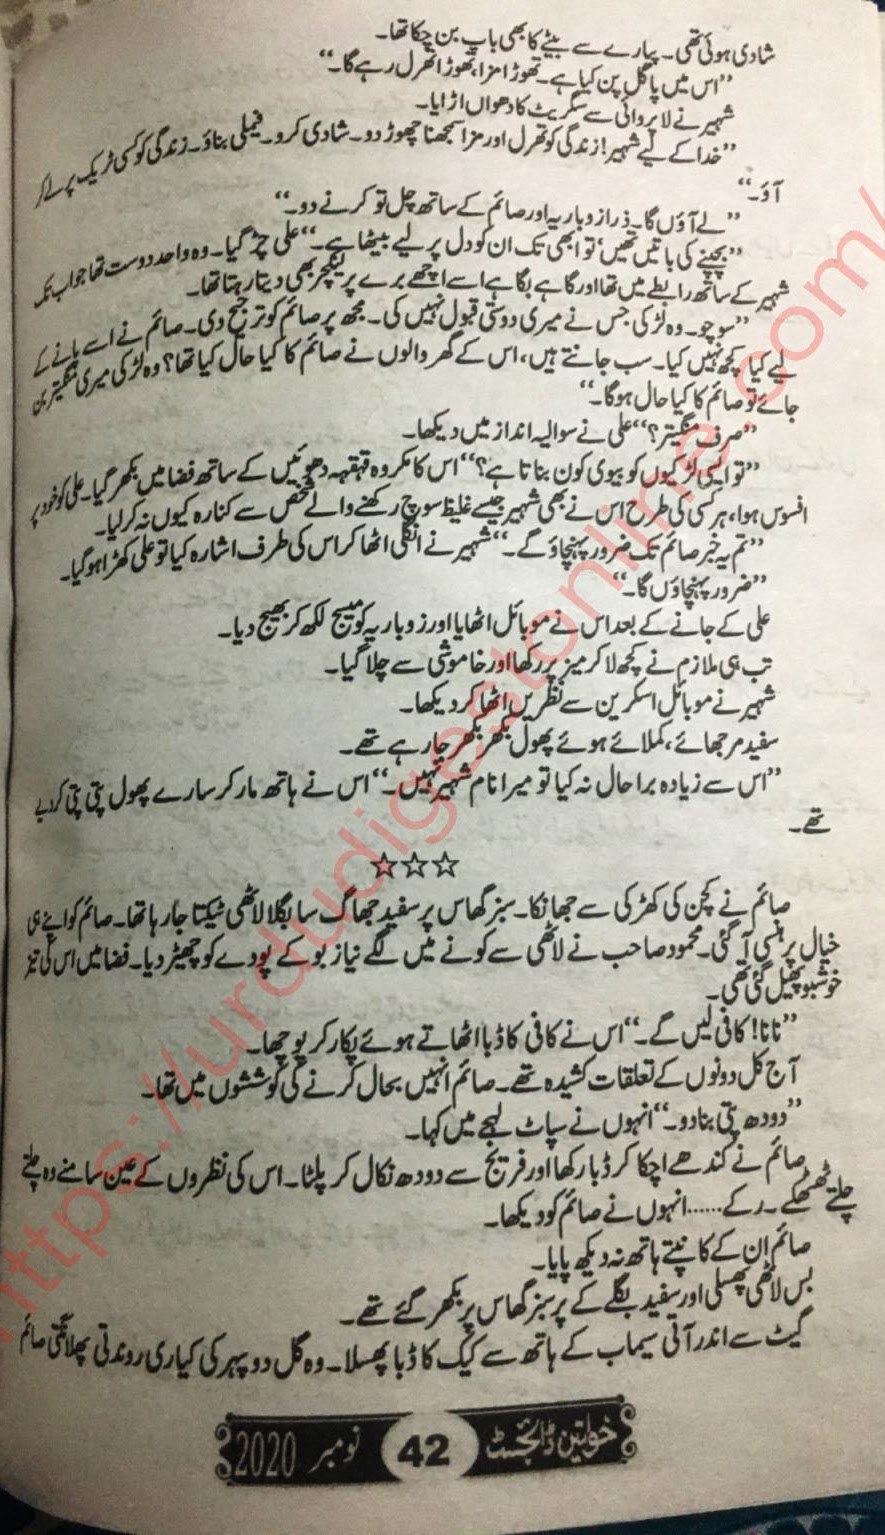 شادی ہوئی تھی۔ پیارے سے بیٹے کا بھی باپ بن چکا تھا۔
"اس میں پاگل پن کیا ہے۔ تھوڑا مزا، تھوڑا تھرل رہے گا۔"
شہیر نے لاپروائی سے سگریٹ کا دھواں اڑایا۔
"خدا کے لیے شہیر! زندگی کو تھرل اور مزا سمجھنا چھوڑ دو۔ شادی کرو۔ فیملی بناؤ۔ زندگی کو کسی ٹریک پر لے کر
آؤ۔"
"لے آؤں گا۔ ذرا زوباریہ اور صائم کے ساتھ چل تو کرنے دو۔"
"بچپنے کی باتیں تھیں، تو ابھی تک ان کو دل پر لیے بیٹھا ہے۔" علی چڑ گیا۔ وہ واحد دوست تھا جو اب تک
شہیر کے ساتھ رابطے میں تھا اور گاہے بگاہے اسے اچھے برے پر لیکچر بھی دیتا رہتا تھا۔
"سوچو۔ وہ لڑکی جس نے میری دوستی قبول نہیں کی۔ مجھ پر صائم کو ترجیح دی۔ صائم نے اسے پانے کے
لیے کیا کچھ نہیں کیا۔ سب جانتے ہیں، اس کے گھر والوں نے صائم کا کیا حال کیا تھا؟ وہ لڑکی میری منگیتر بن
جائے تو صائم کا کیا حال ہوگا۔"
"صرف منگیتر؟" علی نے سوالیہ انداز میں دیکھا۔
"تو ایسی لڑکیوں کو بیوی کون بناتا ہے؟" اس کا مکروہ قہقہہ دھوئیں کے ساتھ فضا میں بکھر گیا۔ علی کو خود پر
افسوس ہوا، ہر کسی کی طرح اس نے بھی شہیر جیسے غلیظ سوچ رکھنے والے شخص سے کنارہ کیوں نہ کر لیا۔
"تم یہ خبر صائم تک ضرور پہنچاؤ گے۔" شہیر نے انگلی اٹھا کر اس کی طرف اشارہ کیا تو علی کھڑا ہوگیا۔
"ضرور پہنچاؤں گا۔"
علی کے جانے کے بعد اس نے موبائل اٹھایا اور زوباریہ کو میسج لکھ کر بھیج دیا۔
تب ہی ملازم نے کچھ لا کر میز پر رکھا اور خاموشی سے چلا گیا۔
شہیر نے موبائل اسکرین سے نظریں اٹھا کر دیکھا۔
سفید مرجھائے، کملائے ہوئے پھول بکھر بکھر جا رہے تھے۔
"اس سے زیادہ برا حال نہ کیا تو میرا نام شہیر نہیں۔" اس نے ہاتھ مار کر سارے پھول پتی پتی کر دیے
تھے۔
☆☆☆
صائم نے کچن کی کھڑکی سے جھانکا۔ سبز گھاس پر سفید جھاگ سا بگلا لاٹھی ٹیکتا جا رہا تھا۔ صائم کو اپنے ہی
خیال پر ہنسی آ گئی۔ محمود صاحب نے لاٹھی سے کونے میں لگے نیاز بو کے پودے کو چھیڑ دیا۔ فضا میں اس کی تیز
خوشبو پھیل گئی تھی۔
"نانا! کافی لیں گے۔" اس نے کافی کا ڈبا اٹھاتے ہوئے پکار کر پوچھا۔
آج کل دونوں کے تعلقات کشیدہ تھے۔ صائم انہیں بحال کرنے کی کوششوں میں تھا۔
"دودھ پتی بنا دو۔" انہوں نے سپاٹ لہجے میں کہا۔
صائم نے کندھے اچکا کر ڈبا رکھا اور فریج سے دودھ نکال کر پلٹا۔ اس کی نظروں کے عین سامنے وہ چلتے
چلتے ٹھٹھکے۔ رکے...... انہوں نے صائم کو دیکھا۔
صائم ان کے کانپتے ہاتھ نہ دیکھ پایا۔
بس لاٹھی پھسلی اور سفید بگلے کے پر سبز گھاس پر بکھر گئے تھے۔
گیٹ سے اندر آتی سیماب کے ہاتھ سے کیک کا ڈبا پھسلا۔ وہ گل دوپہر کی کیاری روندتی پھلانگتی صائم
خواتین ڈائجسٹ 42 نومبر 2020
https://urdudigestonline.com/